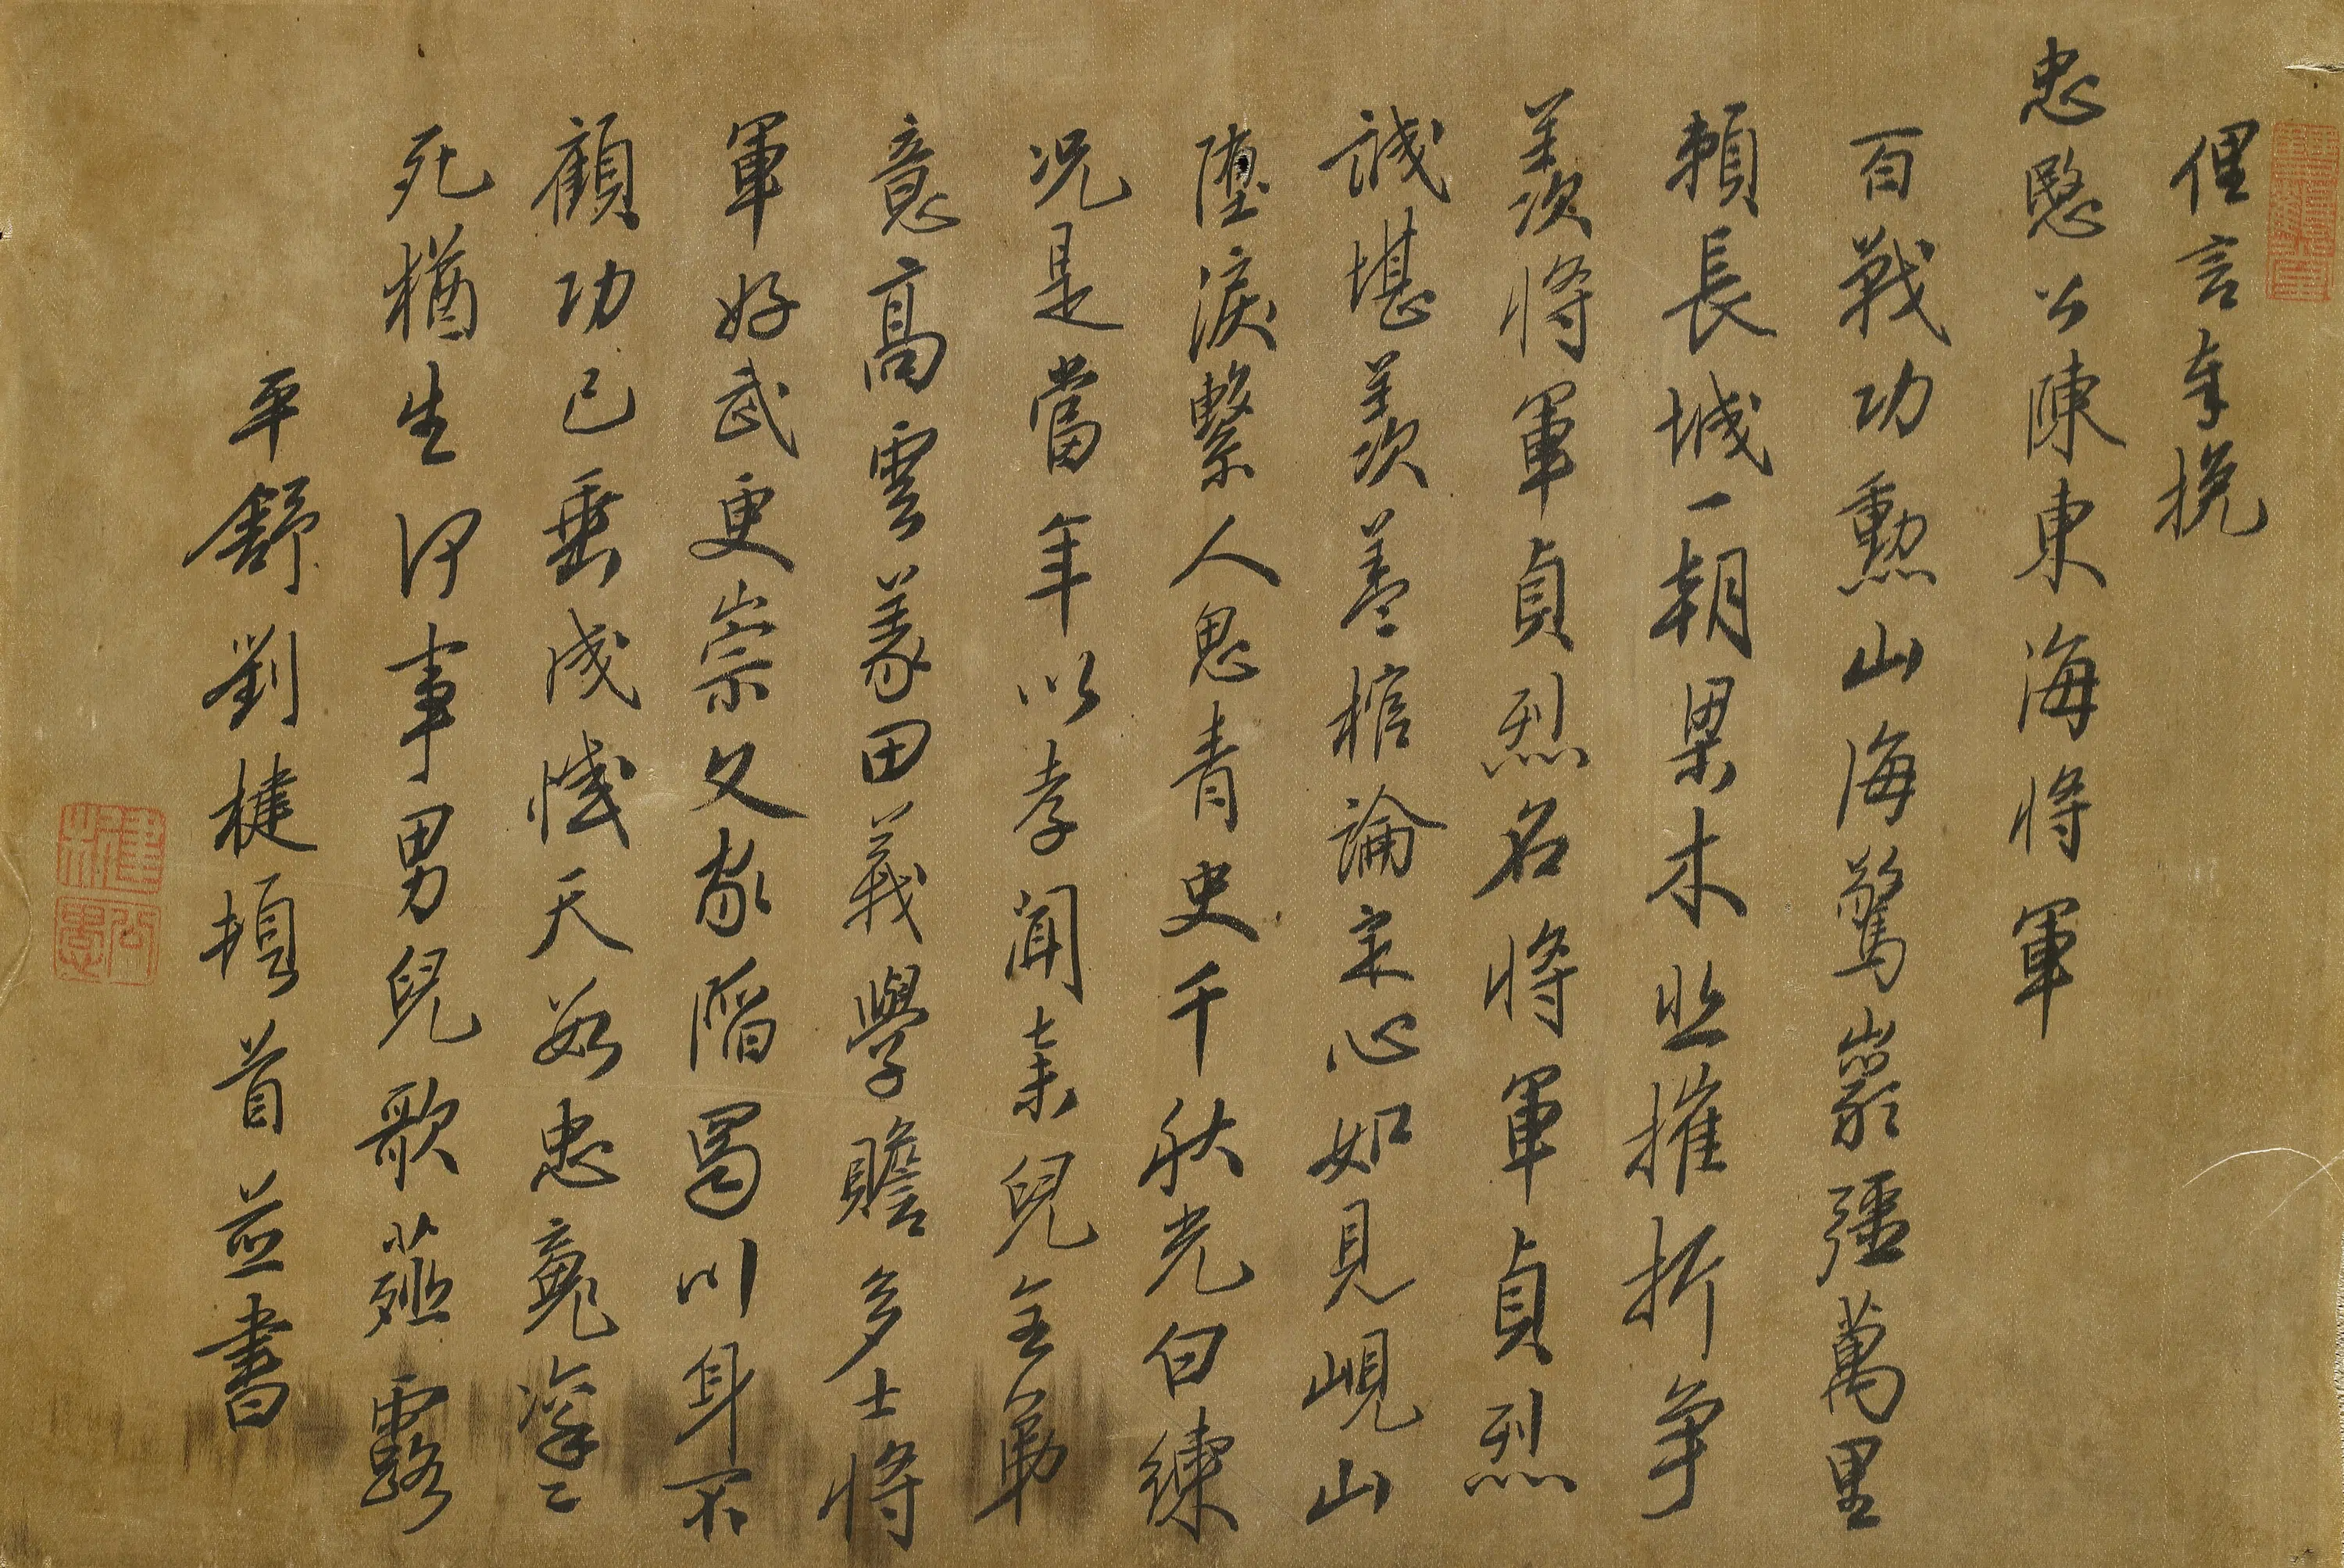 俚言奉挽
忠愍公陳東海將軍
百戰功勳山海驚巖疆萬里
賴長城一朝梁木悲摧折爭
羨將軍貞烈名將軍貞烈
誠堪羨蓋棺論定心如見峴山
墮淚繫人思青史千秋光白練
況是當年以孝聞棄兒全弟
意高雲義田義學贍多士將
軍好武更崇文家陷蜀川身不
顧功已垂成憾天數忠竟凜凜
死猶生何事男兒歌薤露
平舒劉楗頓首並書